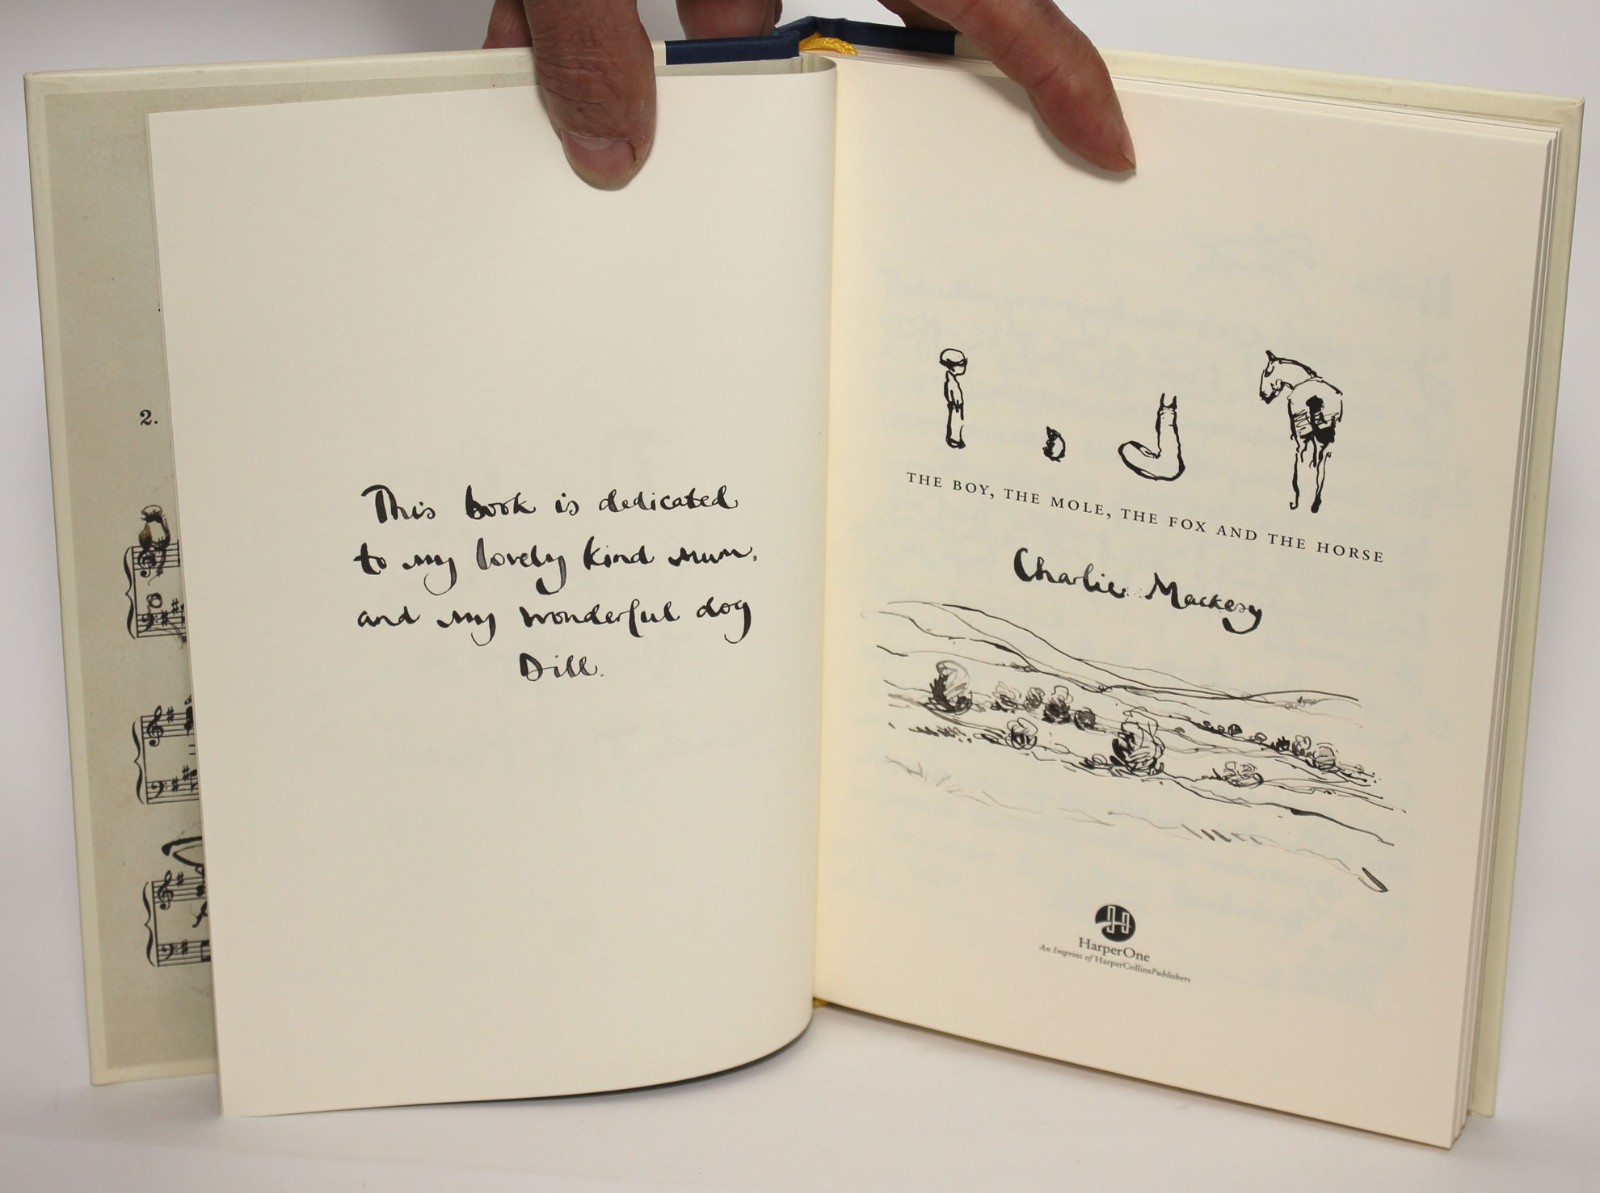 2.
This book is dedicated
to my lovely kind mum,
and my wonderful dog
Dill.
THE BOY, THE MOLE, THE FOX AND THE HORSE
Charlie Mackesy
HarperOne
An Imprint of HarperCollinsPublishers